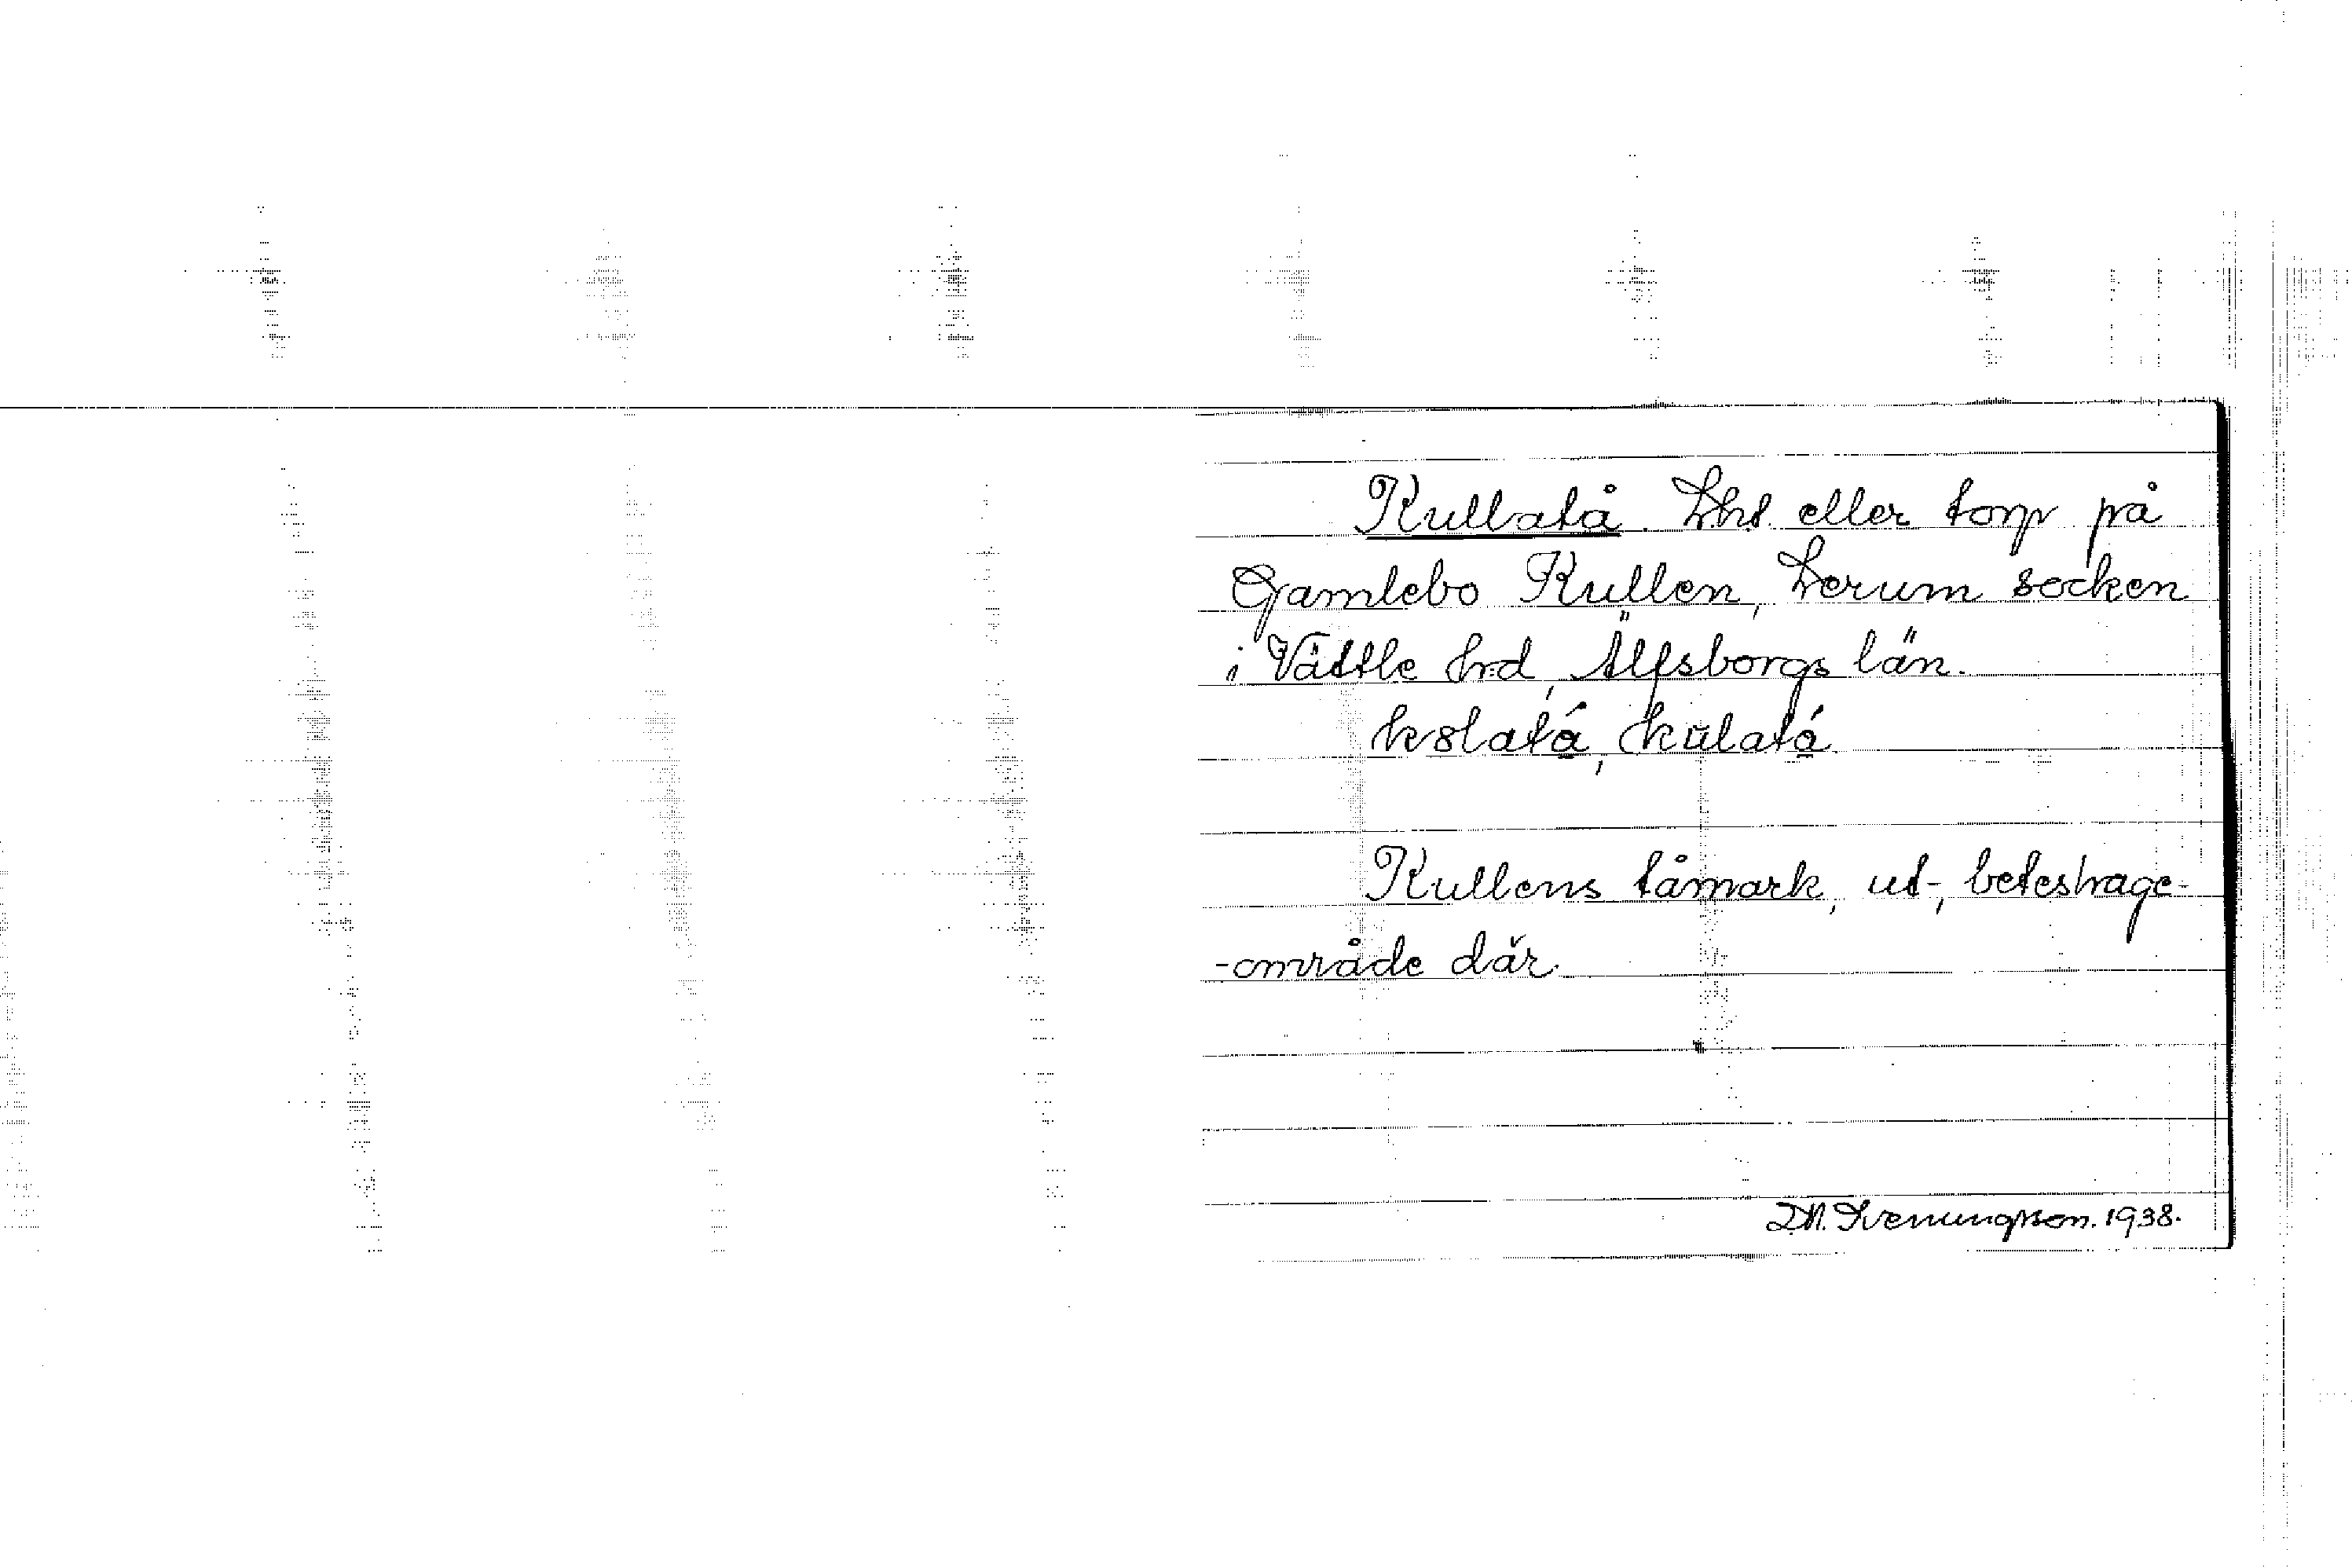 Kullatå. Lht. eller torp på
Gamlebo Kullen, Lerum socken
i Vättle hrd, Älfsborgs län.
k8latá, kulatá
Kullens låmark, ut-, beteshage-
-område där.
D.N. Svenungsson. 1938.